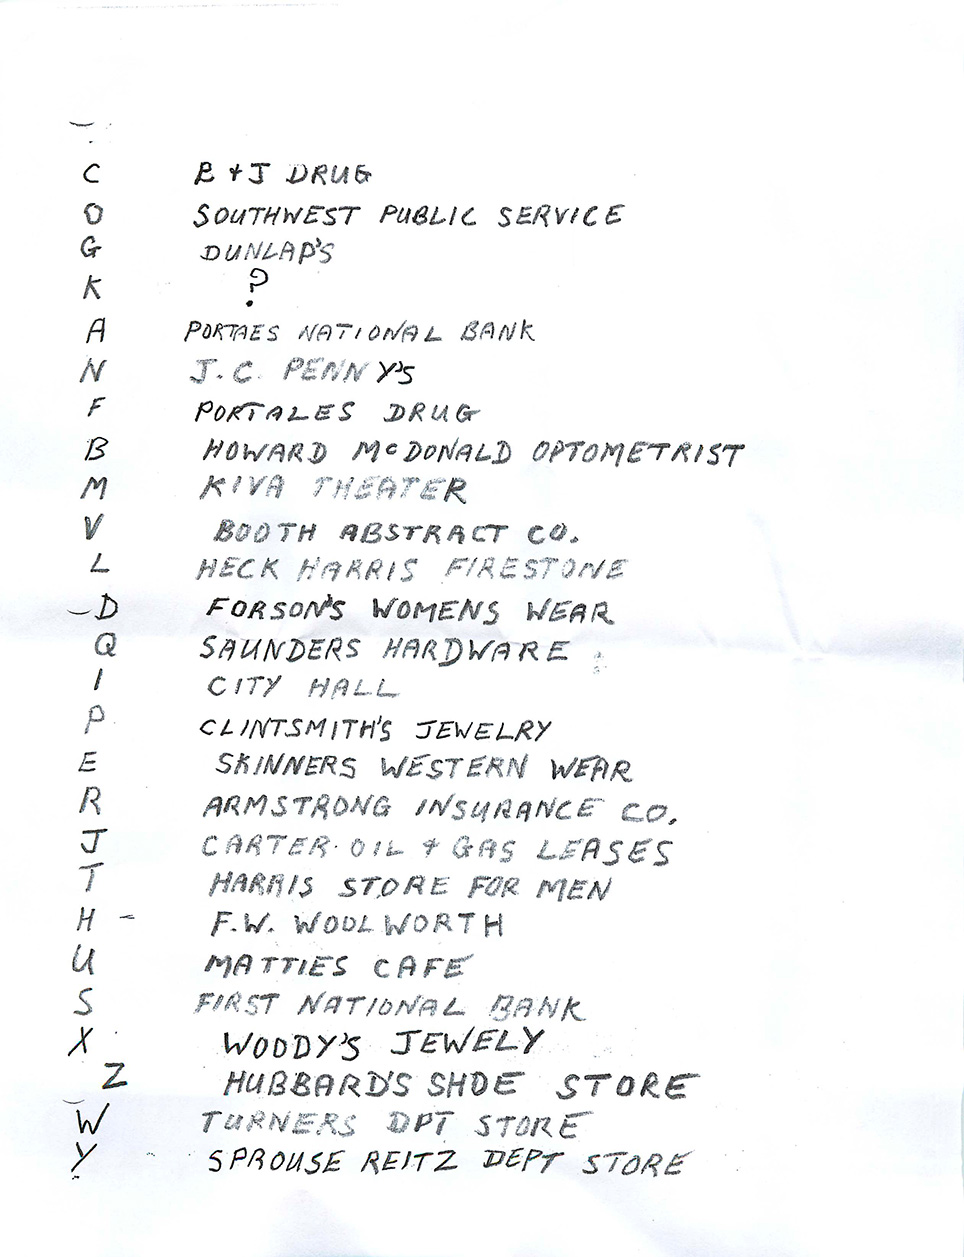 C B + J DRUG
O SOUTHWEST PUBLIC SERVICE
G DUNLAP'S
K ?
A PORTAES NATIONAL BANK
N J.C. PENNY'S
F PORTALES DRUG
B HOWARD McDONALD OPTOMETRIST
M KIVA THEATER
V BOOTH ABSTRACT CO.
L HECK HARRIS FIRESTONE
D FORSON'S WOMENS WEAR
Q SAUNDERS HARDWARE
I CITY HALL
P CLINTSMITH'S JEWELRY
E SKINNERS WESTERN WEAR
R ARMSTRONG INSURANCE CO.
J CARTER OIL + GAS LEASES
T HARRIS STORE FOR MEN
H - F.W. WOOLWORTH
U MATTIES CAFE
S FIRST NATIONAL BANK
X WOODY'S JEWELY
Z HUBBARD'S SHOE STORE
W TURNERS DPT STORE
Y SPROUSE REITZ DEPT STORE